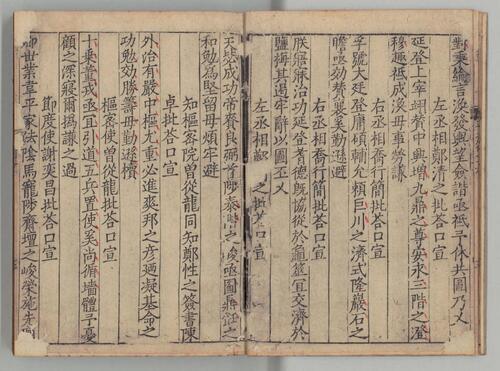 對秉綸言渙發輿望僉諧亟祗予休共圖乃乂
左丞相鄭清之批荅口宣
延登上宰翊贊中興增九鼎之尊安永三階之澄
穆趣祗成渙毋事勞謙
右丞相喬行簡批荅口宣
孚號大廷登庸碩輔允賴巨川之濟式隆巖石之
瞻亟効替襄奚勤遜避
右丞相喬行簡批荅口宣
朕寤寐治功延登耆德旣協從於龜筮宜交濟於
鹽梅其遏牢辭以圖丕乂
左丞相 之批荅口宣
天毖成功帝賚良弼肯陟泰階之峻亟圖鼎飪之
和勉為堅留毋煩牢避
知樞密院曾從龍同知鄭性之簽書陳
卓批荅口宣
外治有嚴中樞尤重必進爽邦之彥廼凝基命之
功勉効勝籌毋勤遜牘
樞密使曾從龍批荅口宣
十乘董戎亟宜引道五兵置使奚尚循墻體予憂
顧之深寢爾撝謙之過
節度使謝奕昌批荅口宣
卿世業韋平家法陰馬寵陟齋壇之峻榮施